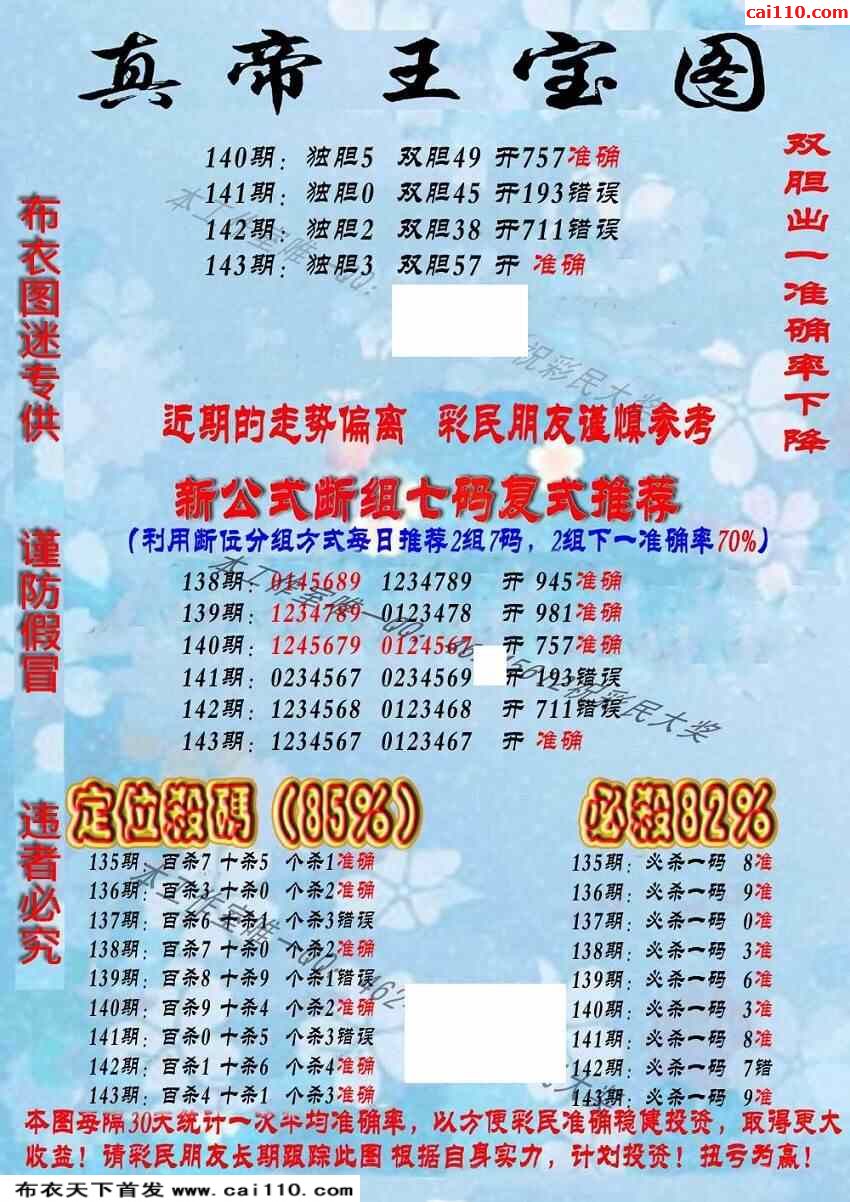 cai110.com
真帝王宝图
140期：独胆5 双胆49 开757准确
141期：独胆0 双胆45 开193错误
142期：独胆2 双胆38 开711错误
143期：独胆3 双胆57 开 准确
双胆出一准确率下降
布衣图迷专供
谨防假冒
违者必究
近期的走势偏离 彩民朋友谨慎参考
新公式断组七码复式推荐
（利用断位分组方式每日推荐2组7码，2组下一准确率70%）
138期：0145689 1234789 开 945准确
139期：1234789 0123478 开 981准确
140期：1245679 0124567 开 757准确
141期：0234567 0234569 开 193错误
142期：1234568 0123468 开 711错误
143期：1234567 0123467 开 准确
定位殺碼（85%）
135期：百杀7 十杀5 个杀1准确
136期：百杀3 十杀0 个杀2准确
137期：百杀6 十杀1 个杀3错误
138期：百杀7 十杀0 个杀2准确
139期：百杀8 十杀9 个杀1错误
140期：百杀9 十杀4 个杀2准确
141期：百杀0 十杀5 个杀3错误
142期：百杀1 十杀6 个杀4准确
143期：百杀4 十杀1 个杀3准确
必殺82%
135期：必杀一码 8准
136期：必杀一码 9准
137期：必杀一码 0准
138期：必杀一码 3准
139期：必杀一码 6准
140期：必杀一码 3准
141期：必杀一码 8准
142期：必杀一码 7错
143期：必杀一码 9准
本图每隔30天统计一次平均准确率，以方便彩民准确稳健投资，取得更大
收益！请彩民朋友长期跟踪此图 根据自身实力，计划投资！扭亏为赢！
布衣天下首发 www.cai110.com